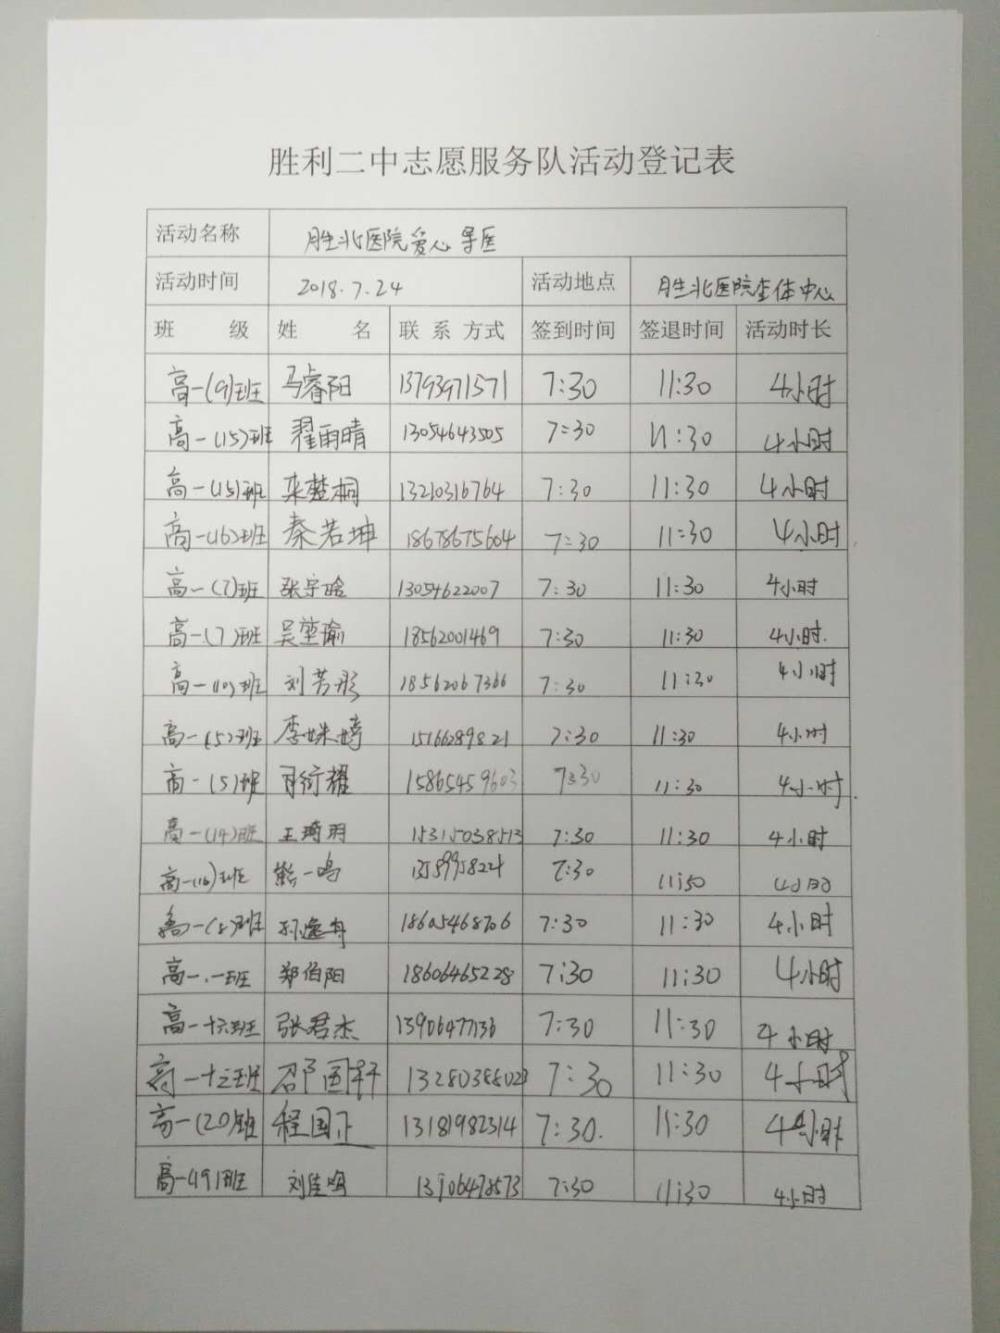 胜利二中志愿服务队活动登记表
活动名称 胜北医院爱心导医
活动时间 2018.7.24 活动地点 胜北医院查体中心
班 级 姓 名 联系方式 签到时间 签退时间 活动时长
高一(9)班 马睿阳 13793971571 7:30 11:30 4小时
高一(15)班 翟雨晴 13054643505 7:30 11:30 4小时
高一(15)班 楚桐 13210316764 7:30 11:30 4小时
高一(16)班 秦若坤 18678675604 7:30 11:30 4小时
高一(7)班 张宇晗 13054622007 7:30 11:30 4小时
高一(7)班 吴堃瑜 18562001469 7:30 11:30 4小时.
高一(10)班 刘芳彤 18562067366 7:30 11:30 4小时
高一(5)班 李姝婷 15166289821 7:30 11:30 4小时
高一(5)班 衍耀 15865459603 7:30 11:30 4小时.
高一(14)班 王琦玥 15315038513 7:30 11:30 4小时
高一(16)班 熊一鸣 7:30 4小时
高一(8)班 孙逸舟 18605468706 7:30 11:30 4小时
高一.一班 郑伯阳 18606465228 7:30 11:30 4小时
高一十六班 张君杰 13906477136 7:30 11:30 4小时
高一十三班 邵国轩 13280386023 7:30 11:30 4小时
高一(20)班 程国正 13181982314 7:30. 11:30 4小时
高一(19)班 刘佳鸣 13906478573 7:30 11:30 4小时